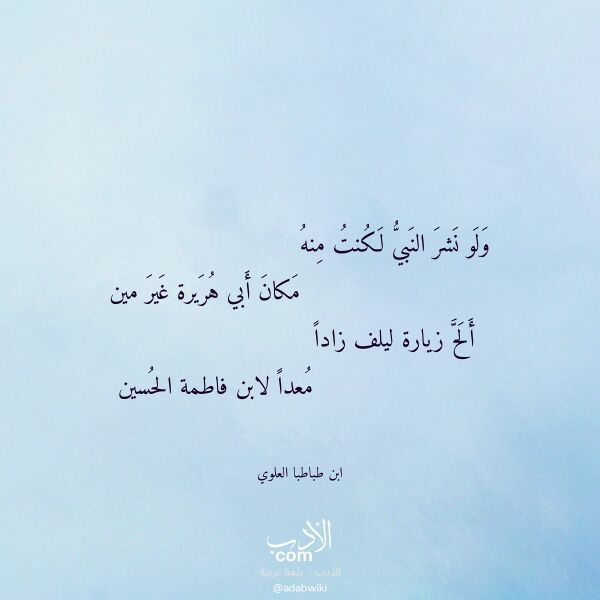 وَلَو نَشرَ النَبيُّ لَكُنتُ مِنهُ
مَكانَ أَبي هُرَيرة غَيرَ مين
أَلَحَّ زيارة ليلف زاداً
مُعداً لابن فاطمة الحُسين
ابن طباطبا العلوي
الأدب
com
الأدب .. بلغة عربية
@adabwiki